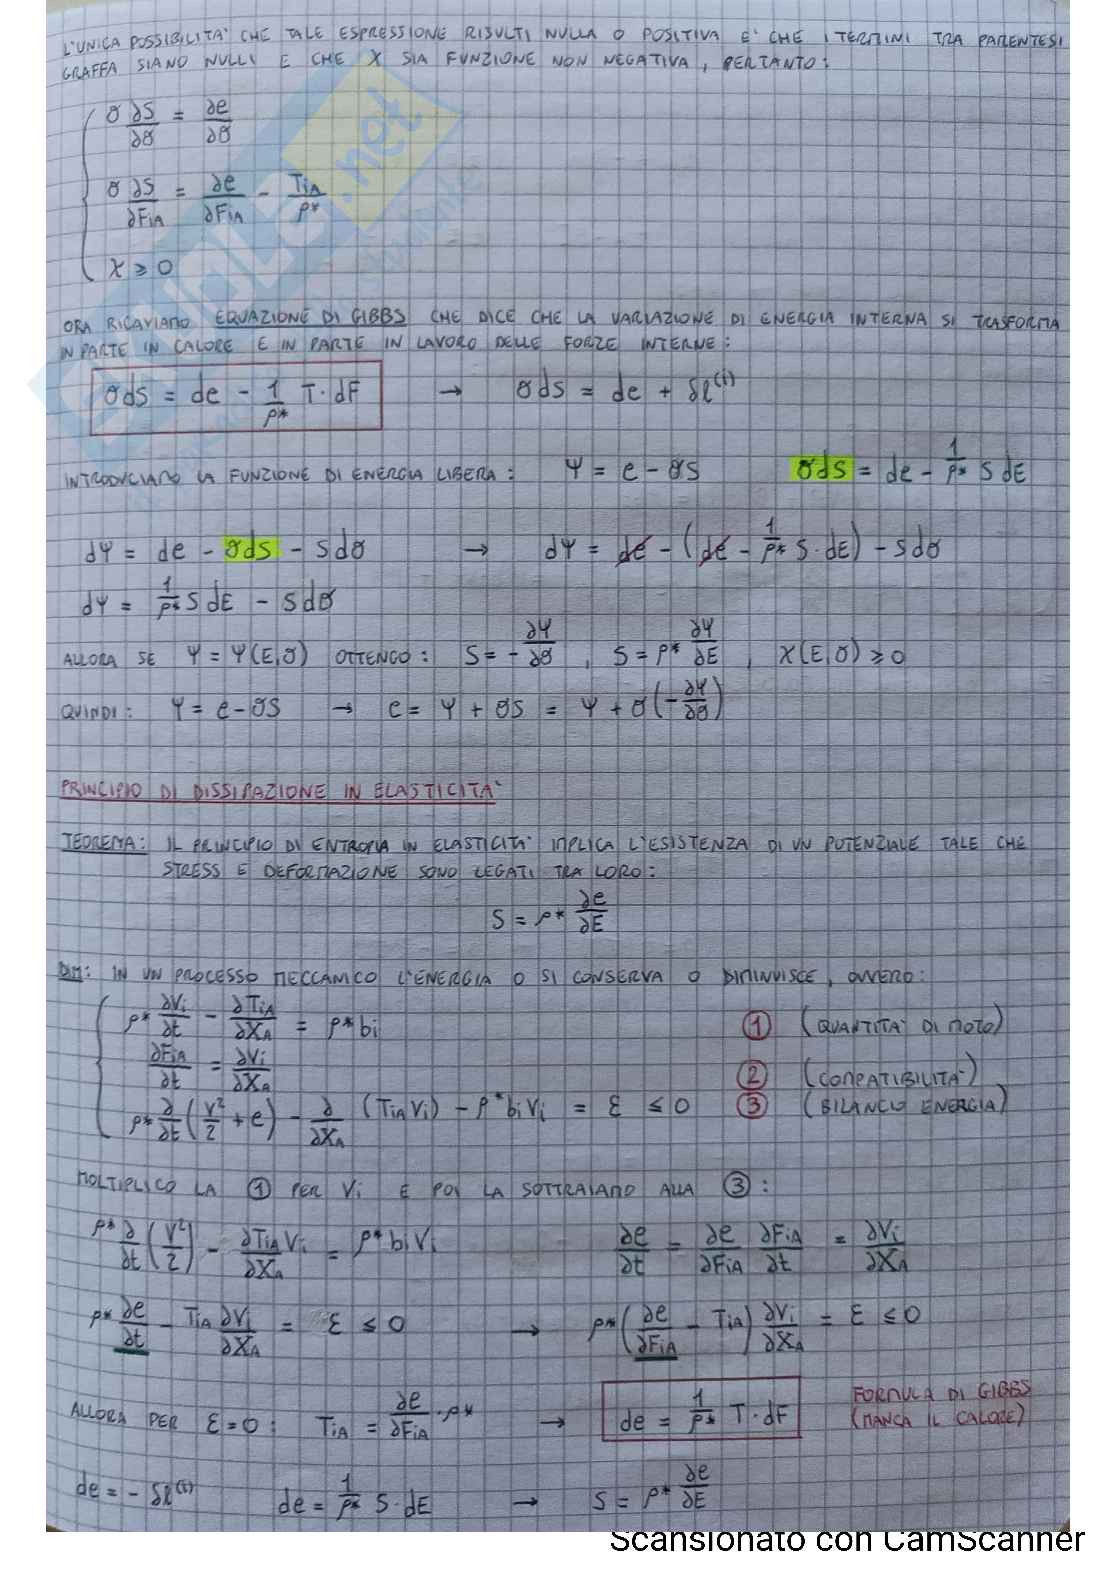 L'UNICA POSSIBILITA' CHE TALE ESPRESSIONE RISULTI NULLA O POSITIVA E' CHE I TERMINI TRA PARENTESI
GRAFFA SIANO NULLI E CHE χ SIA FUNZIONE NON NEGATIVA, PERTANTO:
θ ∂S/∂θ = ∂e/∂θ
θ ∂S/∂FiA = ∂e/∂FiA - TiA/ρ*
χ ≥ 0
ORA RICAVIAMO EQUAZIONE DI GIBBS CHE DICE CHE LA VARIAZIONE DI ENERGIA INTERNA SI TRASFORMA
IN PARTE IN CALORE E IN PARTE IN LAVORO DELLE FORZE INTERNE:
θdS = de - 1/ρ* T·dF → θdS = de + δl⁽ⁱ⁾
INTRODUCIAMO LA FUNZIONE DI ENERGIA LIBERA: Ψ = e - θS θdS = de - 1/ρ* S dE
dΨ = de - θdS - Sdθ → dΨ = de - (de - 1/ρ* S·dE) - Sdθ
dΨ = 1/ρ* S dE - Sdθ
ALLORA SE Ψ = Ψ(E,θ) OTTENGO: S = - ∂Ψ/∂θ , S = ρ* ∂Ψ/∂E , χ(E,θ) ≥ 0
QUINDI: Ψ = e - θS → e = Ψ + θS = Ψ + θ(-∂Ψ/∂θ)
PRINCIPIO DI DISSIPAZIONE IN ELASTICITA'
TEOREMA: IL PRINCIPIO DI ENTROPIA IN ELASTICITA' IMPLICA L'ESISTENZA DI UN POTENZIALE TALE CHE
STRESS E DEFORMAZIONE SONO LEGATI TRA LORO:
S = ρ* ∂e/∂E
DIM: IN UN PROCESSO MECCANICO L'ENERGIA O SI CONSERVA O DIMINUISCE, OVVERO:
ρ* ∂Vi/∂t - ∂TiA/∂XA = ρ*bi ① (QUANTITA' DI MOTO)
∂FiA/∂t = ∂Vi/∂XA ② (COMPATIBILITA')
ρ* ∂/∂t (V²/2 + e) - ∂/∂XA (TiAVi) - ρ*biVi = ε ≤ 0 ③ (BILANCIO ENERGIA)
MOLTIPLICO LA ① PER Vi E POI LA SOTTRAIAMO ALLA ③:
ρ* ∂/∂t (V²/2) - ∂TiA Vi/∂XA = ρ*biVi ∂e/∂t = ∂e/∂FiA ∂FiA/∂t = ∂Vi/∂XA
ρ* ∂e/∂t - TiA ∂Vi/∂XA = ε ≤ 0 → ρ*(∂e/∂FiA - TiA) ∂Vi/∂XA = ε ≤ 0
ALLORA PER ε=0: TiA = ∂e/∂FiA · ρ* → de = 1/ρ* T·dF FORMULA DI GIBBS
(MANCA IL CALORE)
de = - δl⁽ⁱ⁾ de = 1/ρ* S·dE → S = ρ* ∂e/∂E
Scansionato con CamScanner